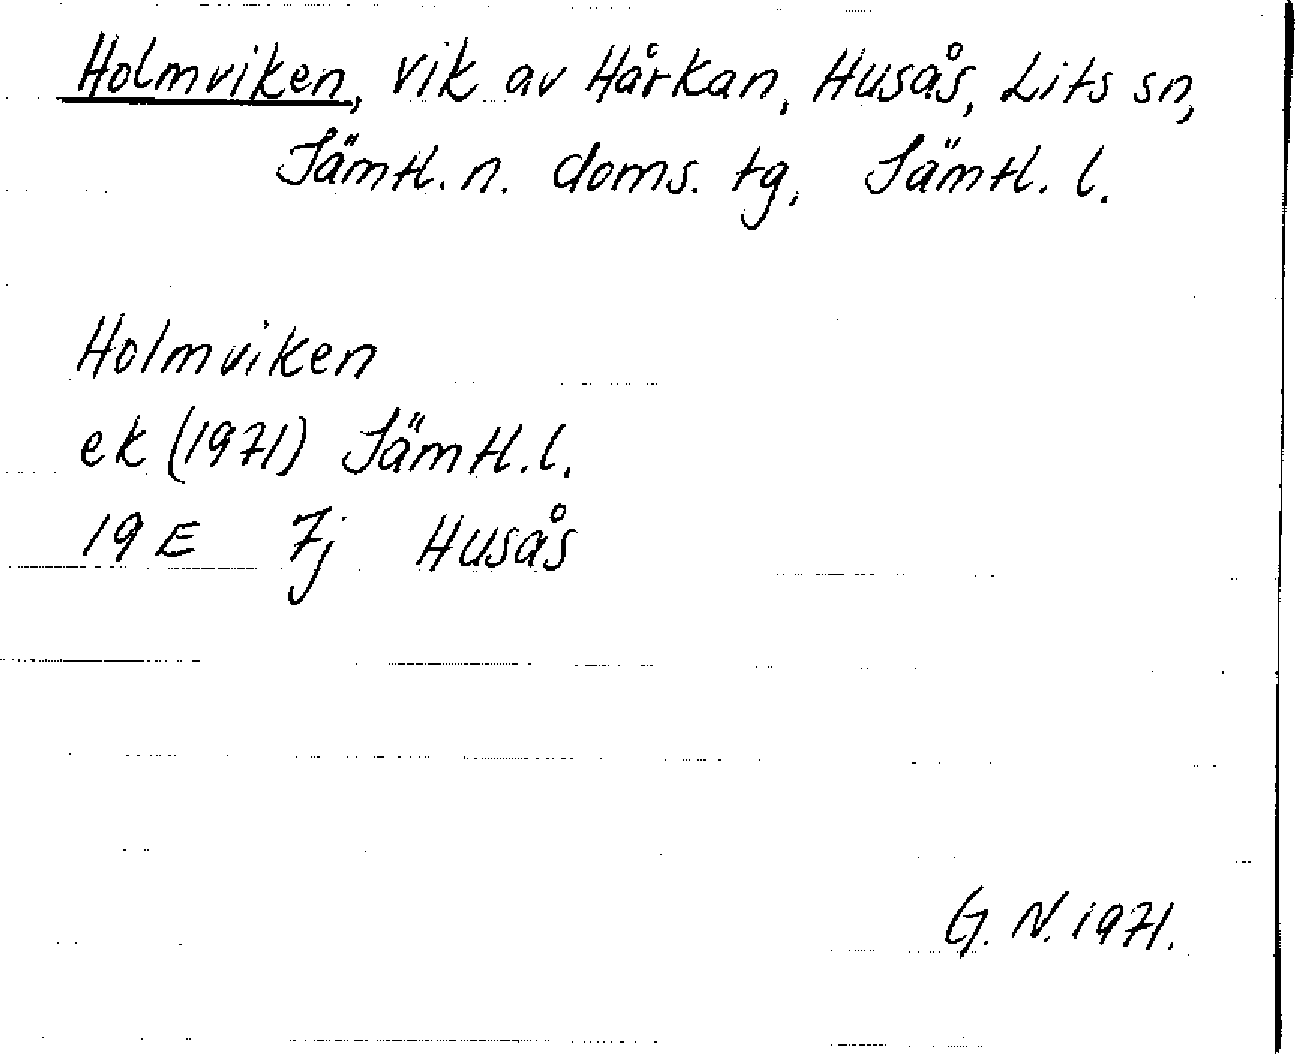 Holmviken, vik av Hårkan, Husås, Lits sn,
Jämtl. n. doms. tg, Jämtl. l.
Holmviken
ek (1971) Jämtl. l.
19 E 7j Husås
G. N. 1971.